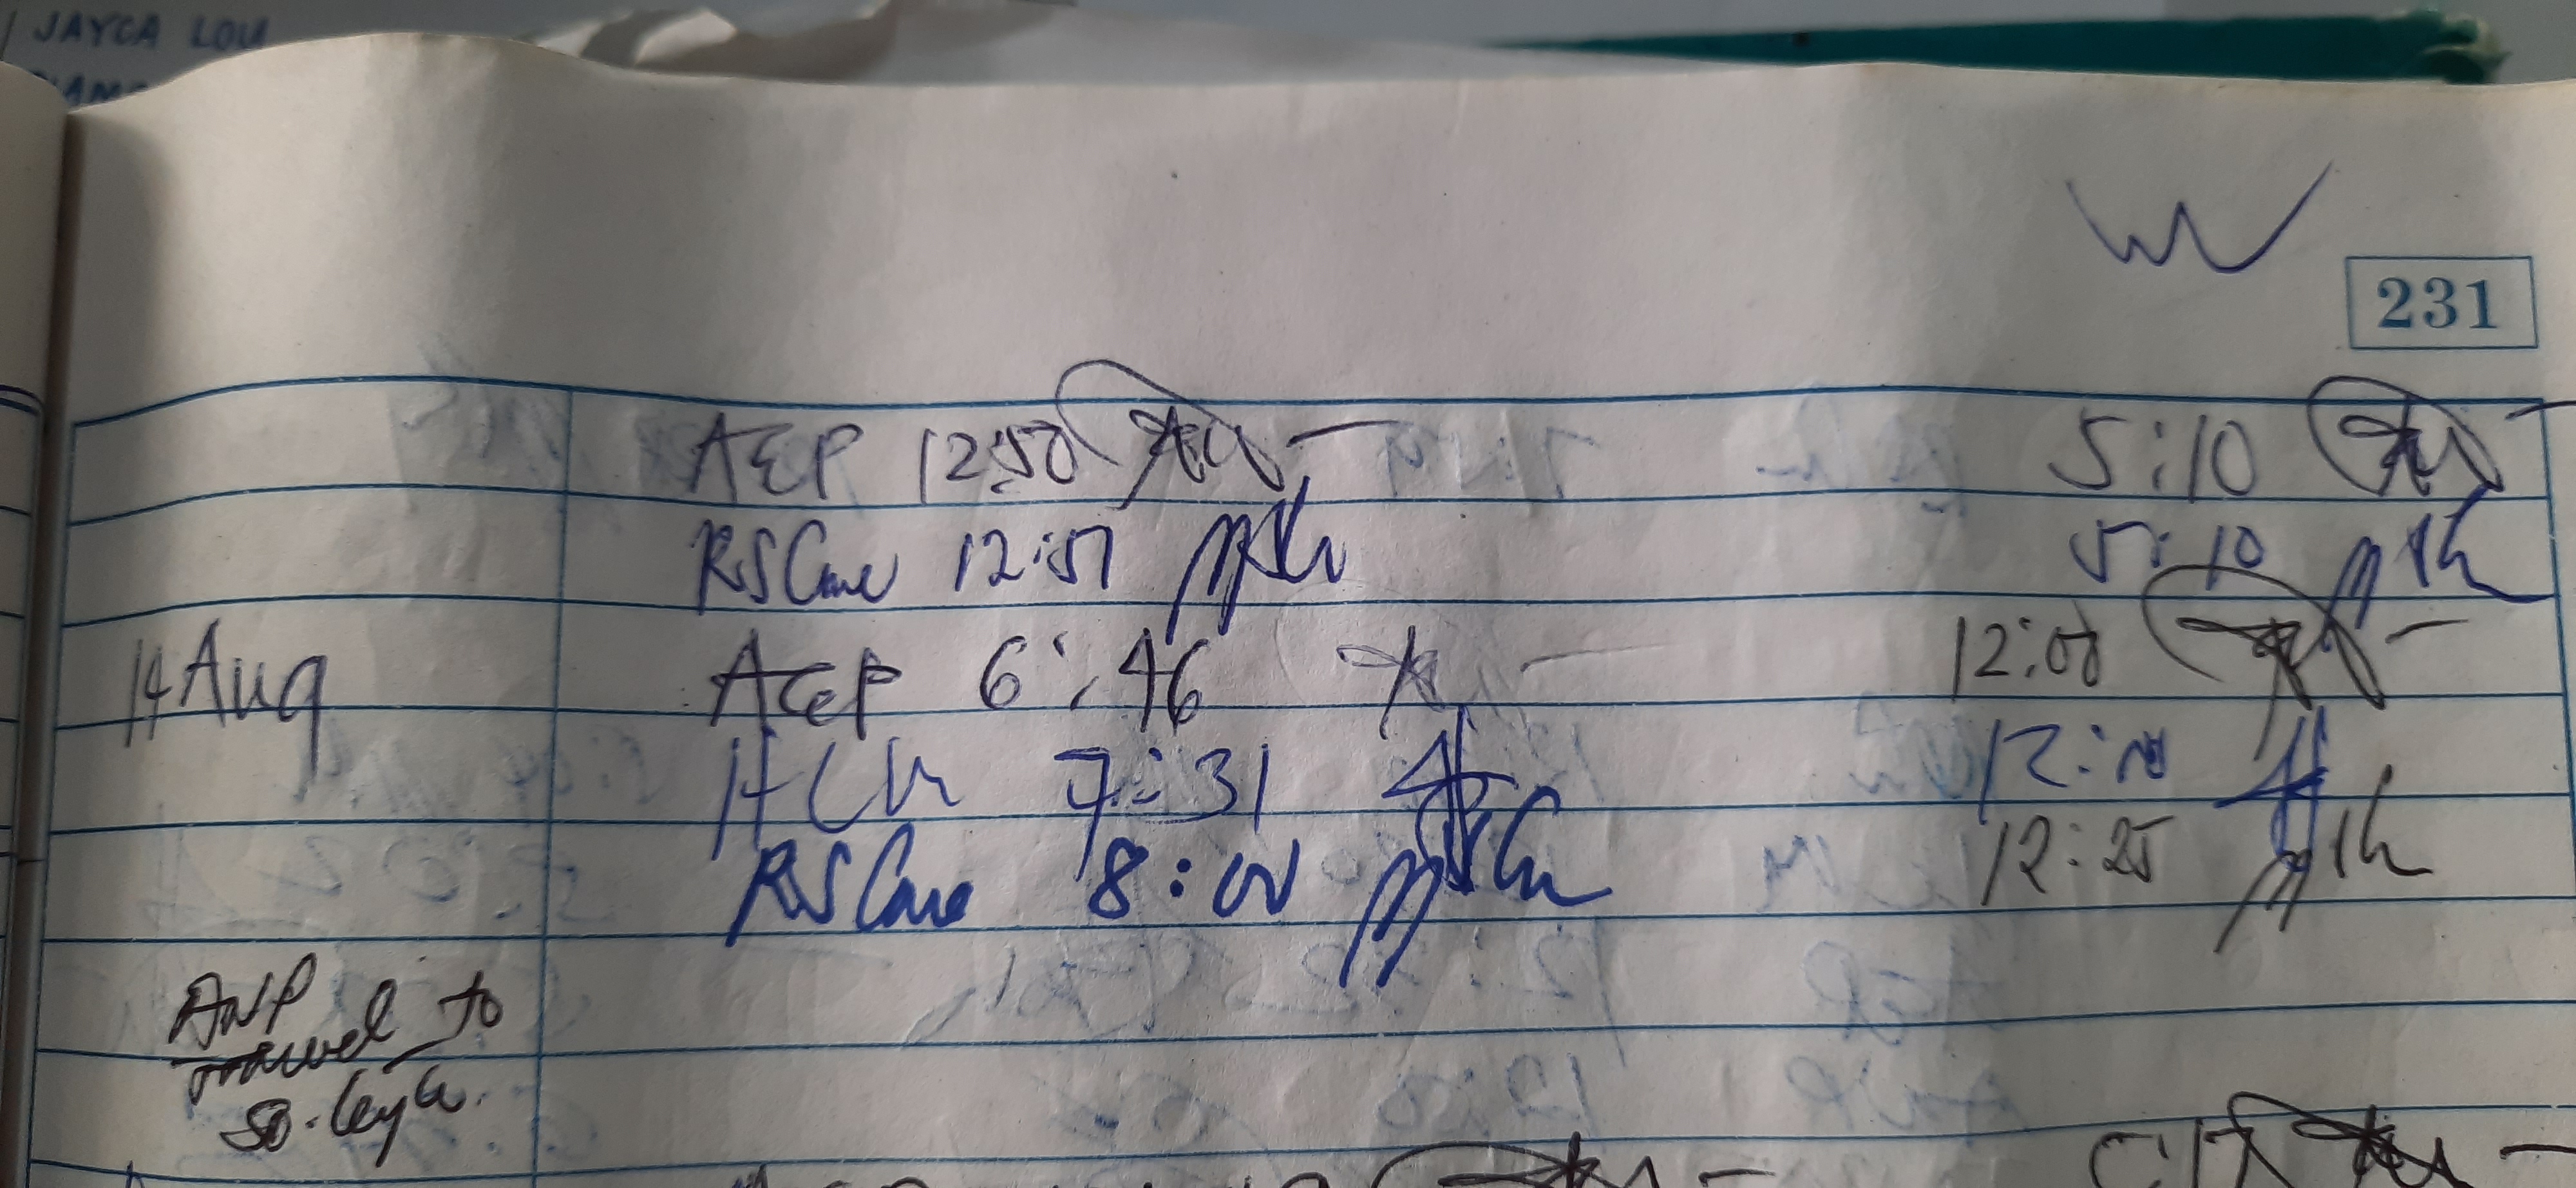 JAYCA LOU
231
AEP 12:50 5:10
RS Cane 12:51 5:10
14 Aug AEP 6:46 12:00
7:31 12:10
RS Cane 8:00 12:25
ANP
travel to
so. Leyte.